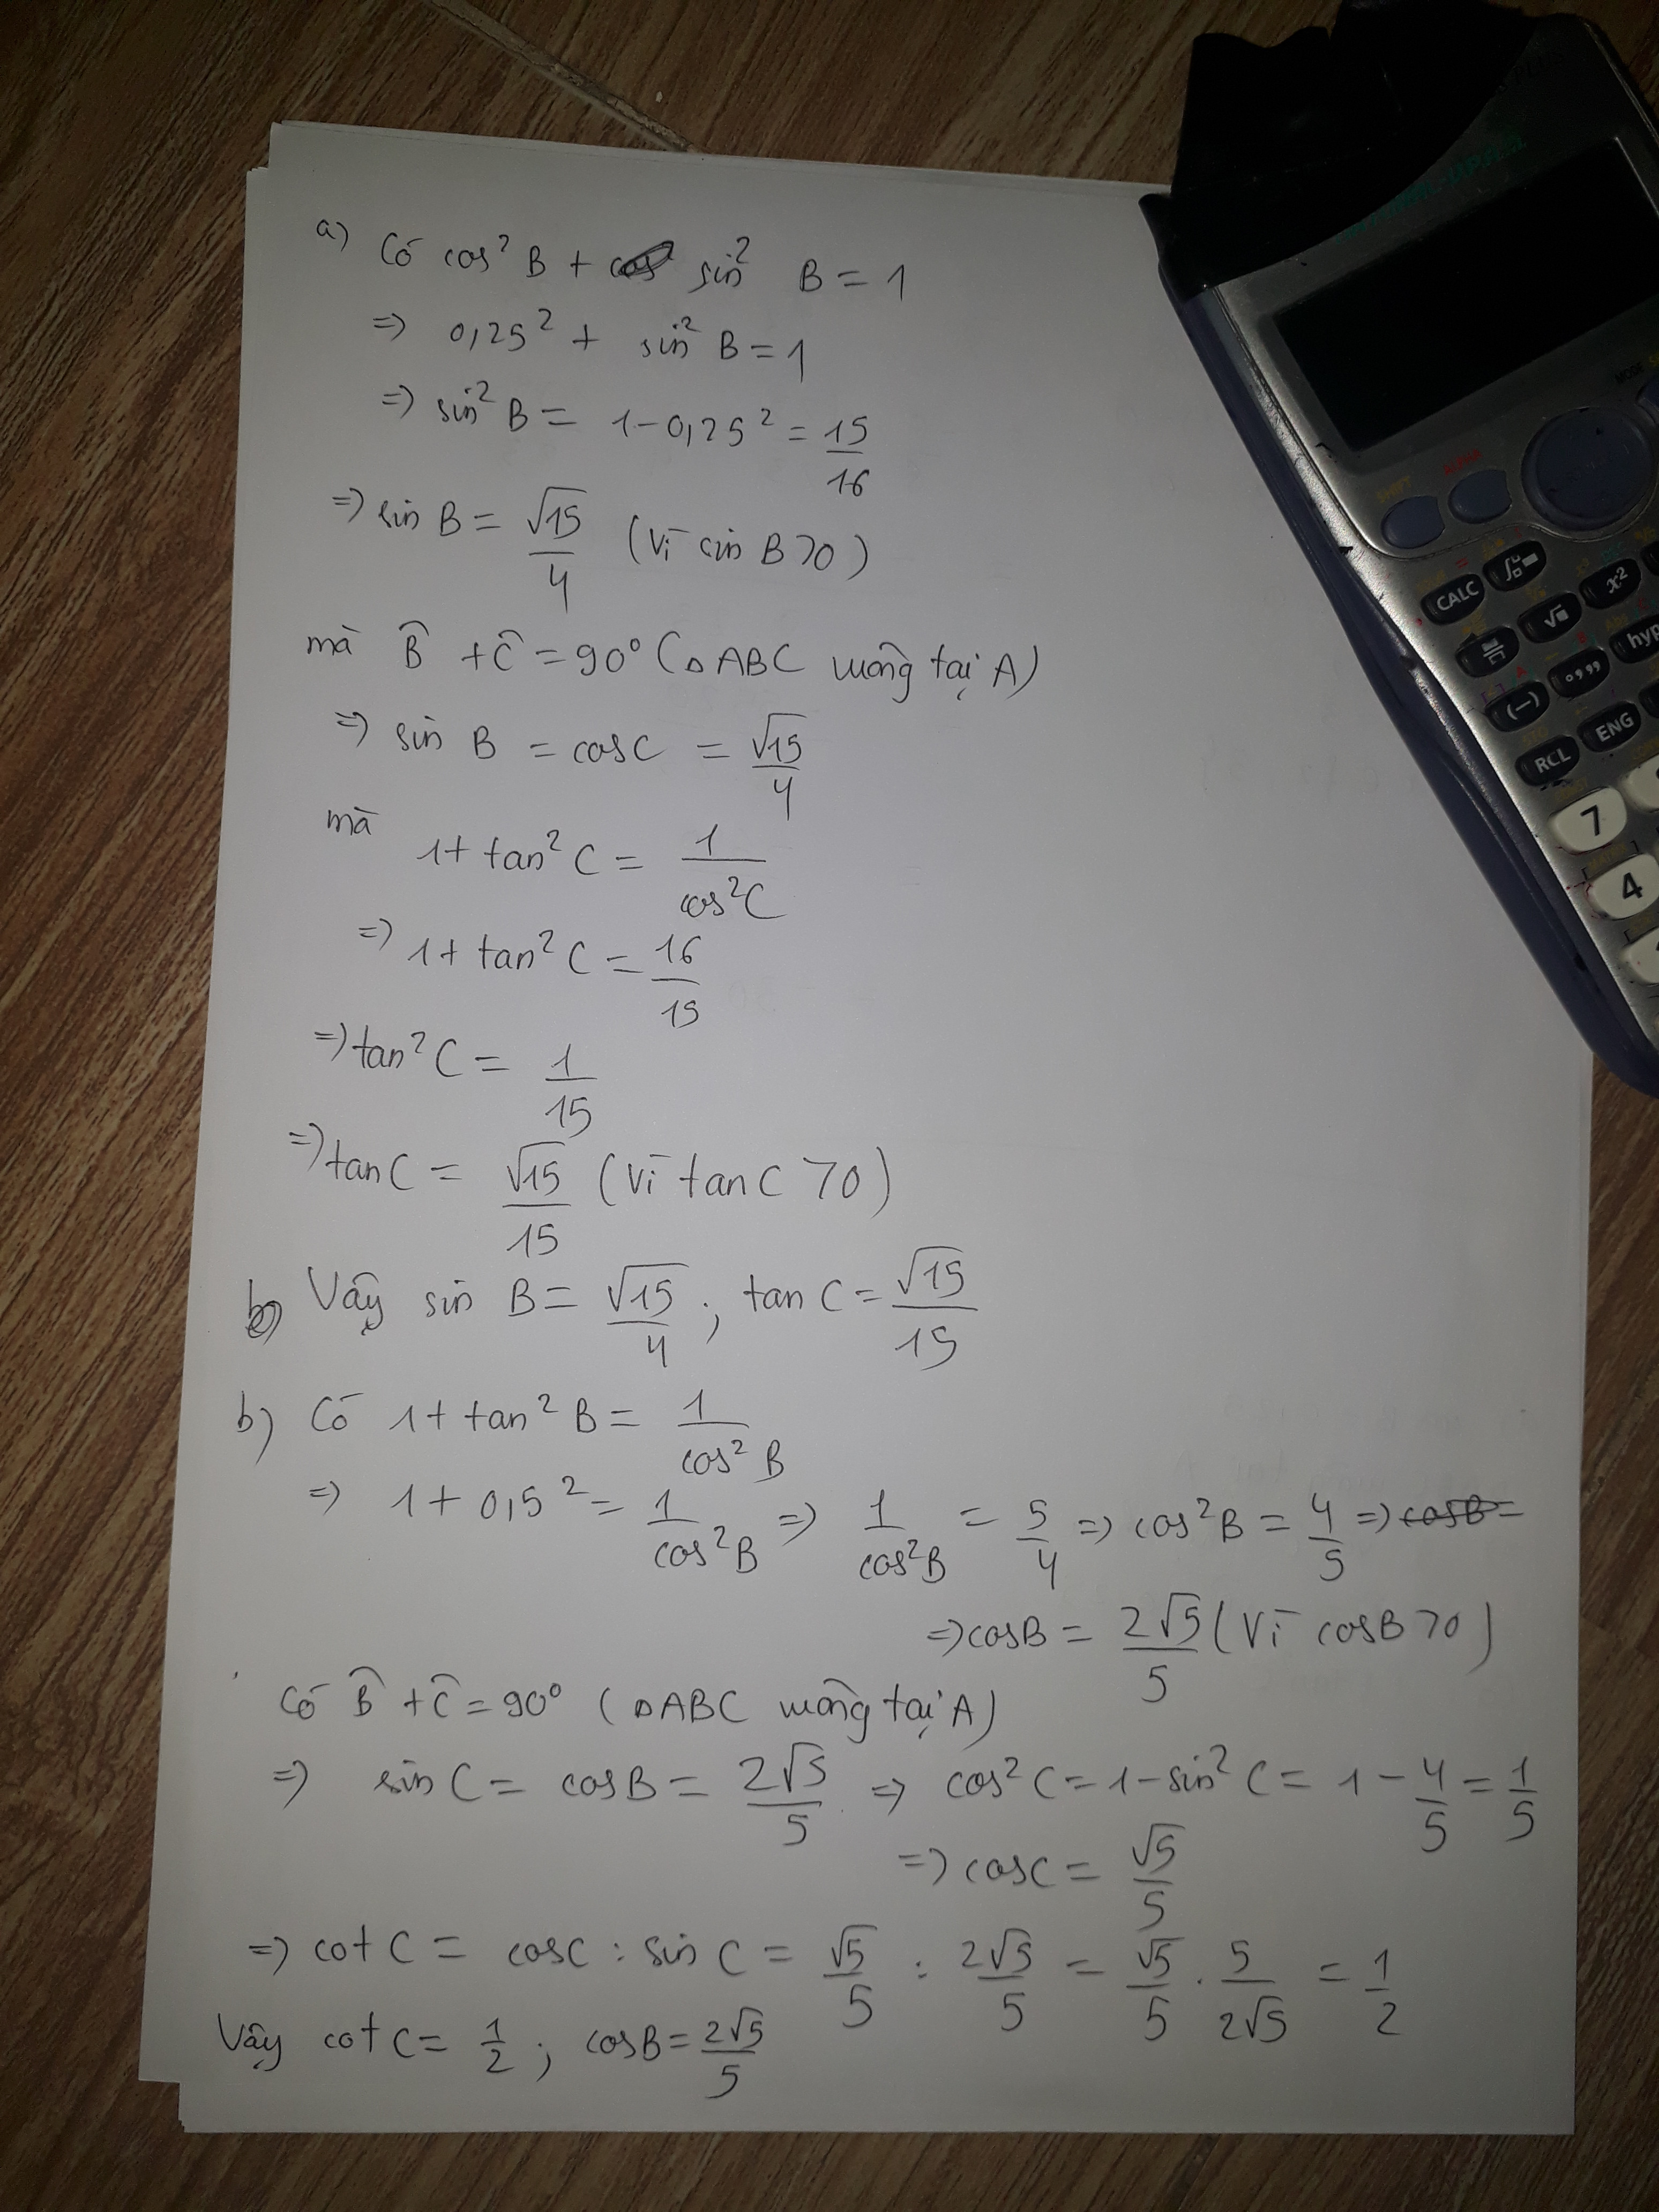 a) Có cos² B + sin² B = 1
=> 0,25² + sin² B = 1
=> sin² B = 1 - 0,25² = 15/16
=> sin B = √15/4 (Vì sin B > 0)
mà B̂ + Ĉ = 90° (△ABC vuông tại A)
=> sin B = cos C = √15/4
mà 1 + tan² C = 1/cos² C
=> 1 + tan² C = 16/15
=> tan² C = 1/15
=> tan C = √15/15 (Vì tan C > 0)
Vậy sin B = √15/4 ; tan C = √15/15
b) Có 1 + tan² B = 1/cos² B
=> 1 + 0,5² = 1/cos² B => 1/cos² B = 5/4 => cos² B = 4/5 => cos B =
=> cos B = 2√5/5 (Vì cos B > 0)
Có B̂ + Ĉ = 90° (△ABC vuông tại A)
=> sin C = cos B = 2√5/5 => cos² C = 1 - sin² C = 1 - 4/5 = 1/5
=> cos C = √5/5
=> cot C = cos C : sin C = √5/5 : 2√5/5 = √5/5 . 5/2√5 = 1/2
Vậy cot C = 1/2 ; cos B = 2√5/5
SHIFT
ALPHA
MODE
CALC
√
x²
hyp
(-)
RCL
ENG
7
4